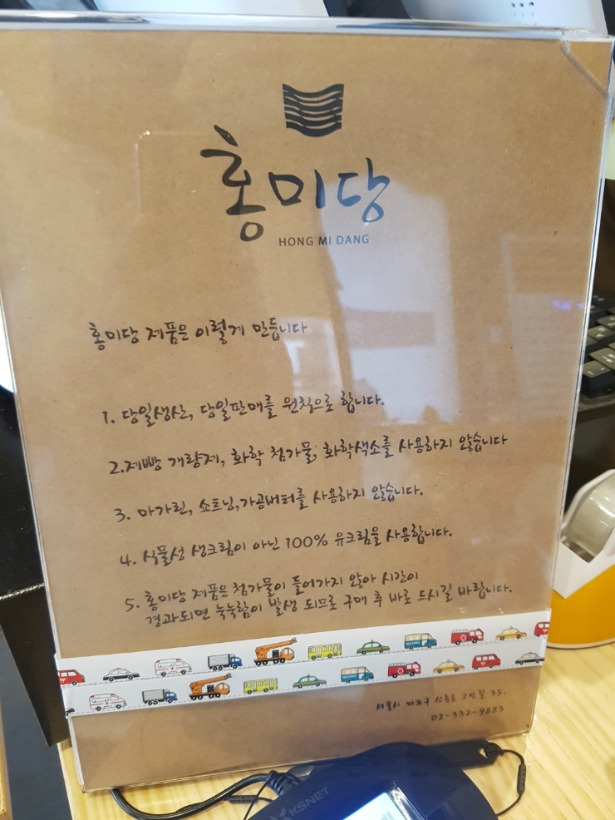 홍미당
HONG MI DANG
홍미당 제품은 이렇게 만듭니다
1. 당일생산, 당일판매를 원칙으로 합니다.
2.제빵 개량제, 화학 첨가물, 화학색소를 사용하지 않습니다
3. 마가린, 쇼트닝,가공버터를 사용하지 않습니다.
4. 식물성 생크림이 아닌 100% 유크림을 사용합니다.
5. 홍미당 제품은 첨가물이 들어가지 않아 시간이
경과되면 눅눅함이 발생 되므로 구매 후 바로 드시길 바랍니다.
서울시 마포구 35.
02-332-
KSNET